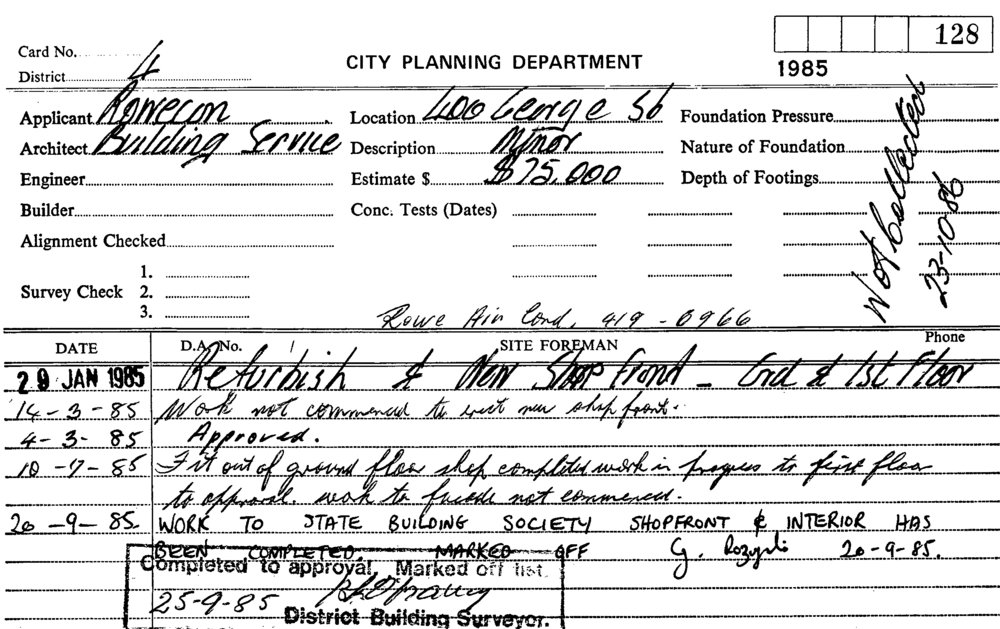 128
Card No.
CITY PLANNING DEPARTMENT
1985
District 4
Applicant Rowecon
Location 400 George St
Foundation Pressure
Architect Building Service
Description Minor
Nature of Foundation
Engineer
Estimate $ $75,000
Depth of Footings
Builder
Conc. Tests (Dates)
Not Collected
23-10-86
Alignment Checked
1.
Survey Check 2.
3.
Rowe Air Cond, 419-0966
DATE D.A. No. SITE FOREMAN Phone
29 JAN 1985 Refurbish & New Shop Front - Grd & 1st Floor
14-3-85 Work not commenced to erect new shop front.
4-3-85 Approved.
10-7-85 Fit out of ground floor shop completed work in progress to first floor
to approval. work to facade not commenced.
20-9-85. WORK TO STATE BUILDING SOCIETY SHOPFRONT & INTERIOR HAS
BEEN COMPLETED. MARKED OFF G. 20-9-85.
Completed to approval. Marked off list.
25-9-85
District Building Surveyor.